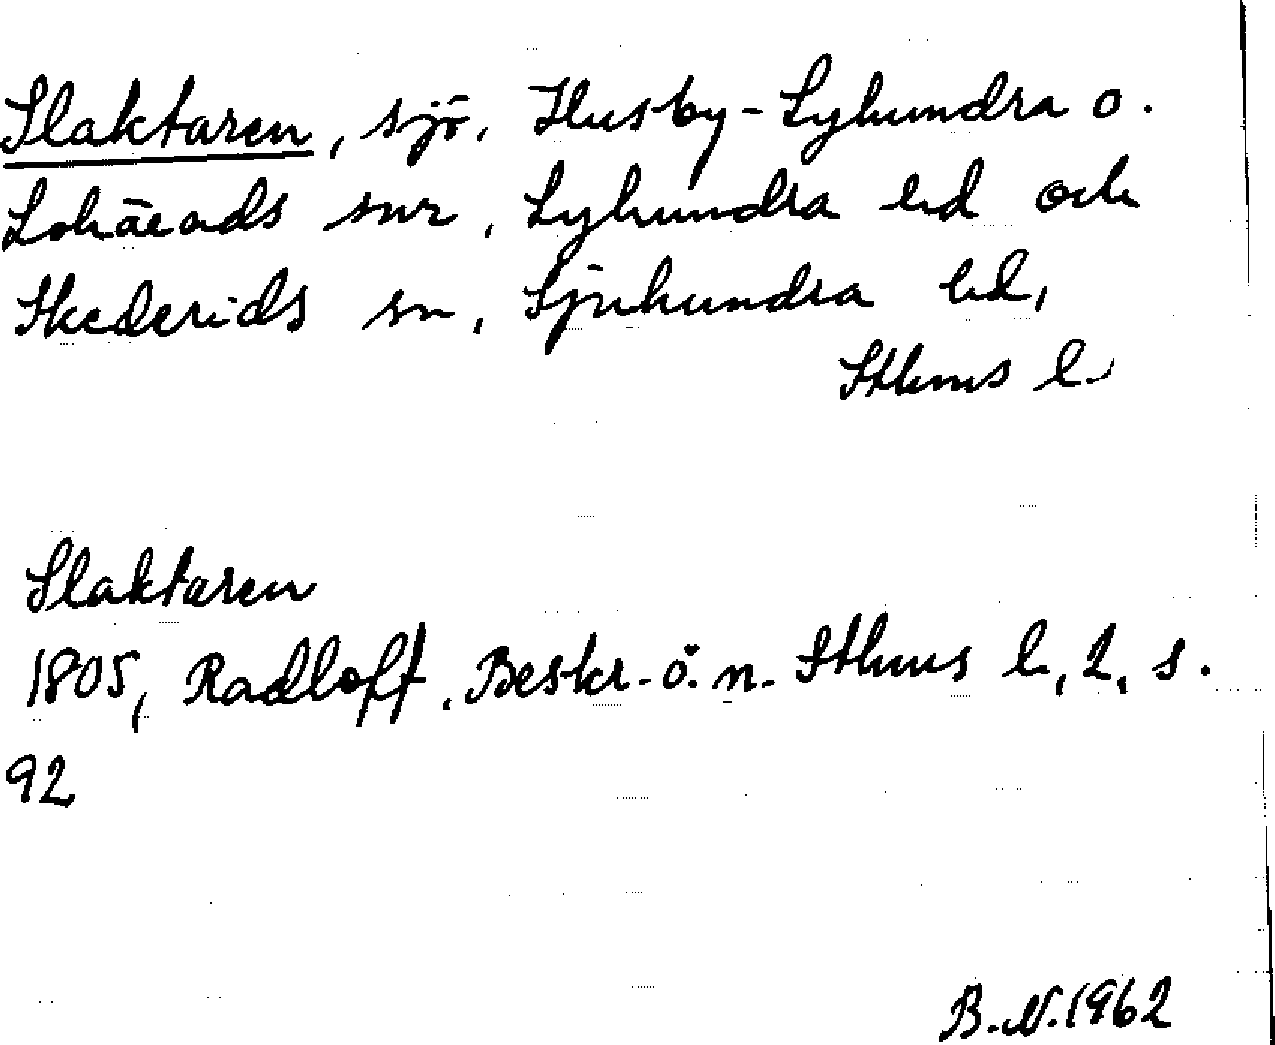 Slaktaren, sjö, Husby-Lyhundra o.
Lohärads snr, Lyhundra hd och
Skederids sn, Sjuhundra hd,
Sthms l.
Slaktaren
1805, Radloff, Beskr. ö. n. Sthms l, 2, s.
92
B.N. 1962